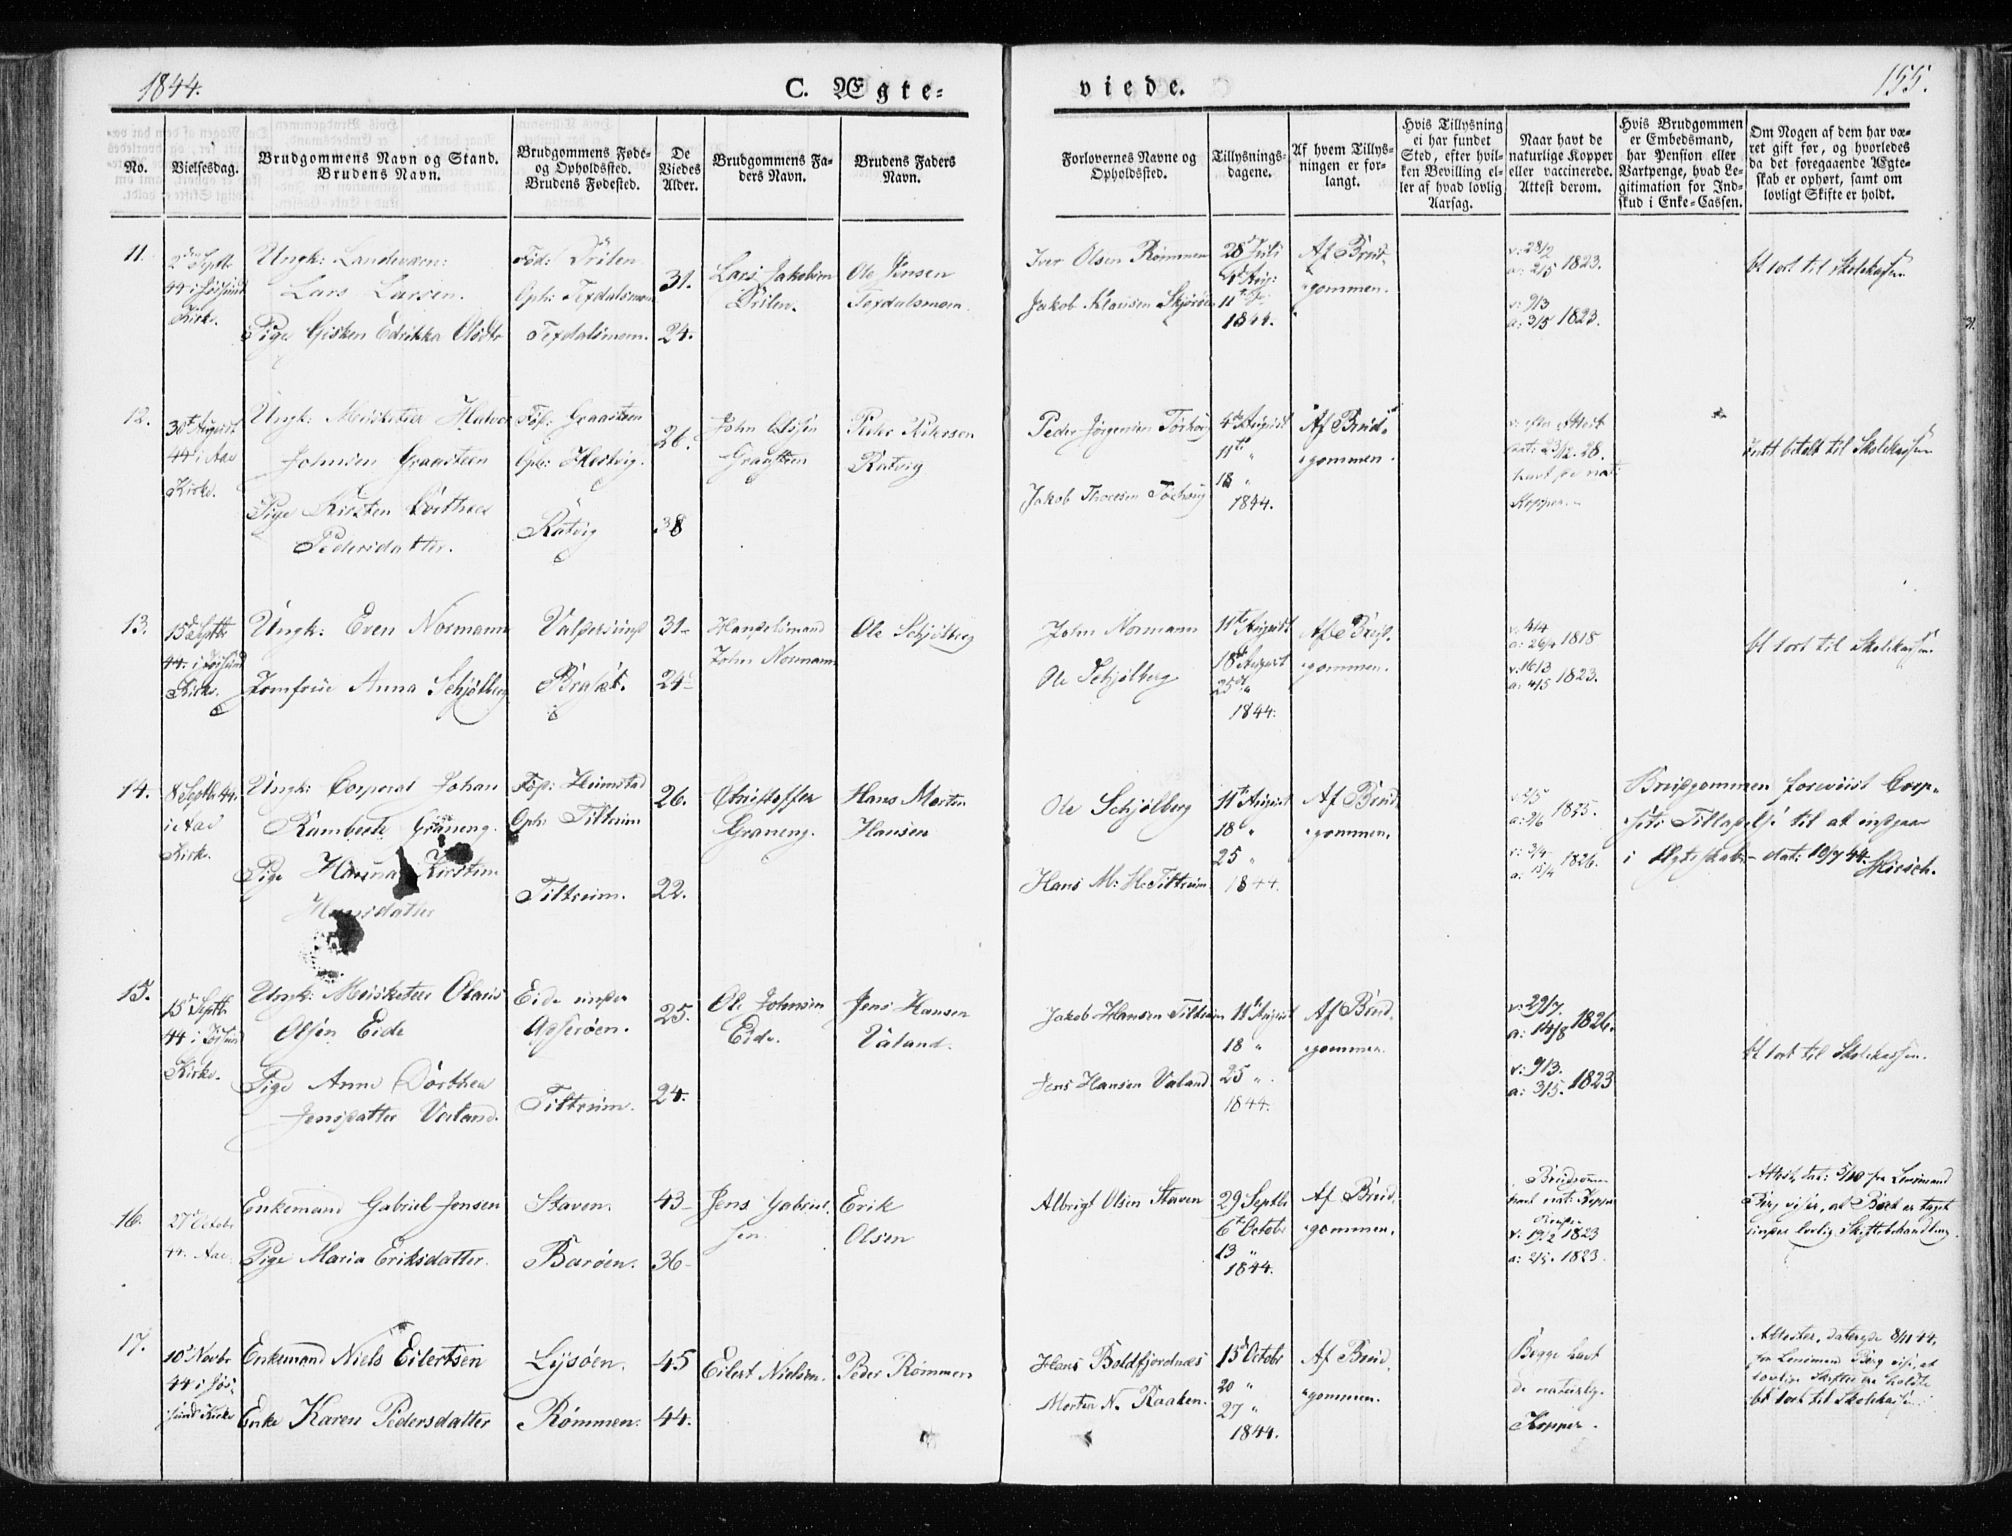 1844.
C. Ægte=
viede.
155.
No.
Vielsesdag.
Brudgommens Navn og Stand.
Brudens Navn.
Brudgommens Føde-
og Opholdssted.
Brudens Fødested.
De
Viedes
Alder.
Brudgommens Fa-
ders Navn.
Brudens Faders
Navn.
Forlovernes Navne og
Opholdssted.
Tillysnings-
dagene.
Af hvem Tillys-
ningen er for-
langt.
Hvis Tillysning
ei har fundet
Sted, efter hvil-
ken Bevilling el-
ler af hvad lovlig
Aarsag.
Naar havt de
naturlige Kopper
eller vaccinerede.
Attest derom.
Hvis Brudgommen
er Embedsmand,
har Pension eller
Vartpenge, hvad Le-
gitimation for Ind-
skud i Enke-Cassen.
Om Nogen af dem har væ-
ret gift før, og hvorledes
da det foregaaende Ægte-
skab er ophørt, samt om
lovligt Skifte er holdt.
11.
2den Septbr
44 i Jøssund
Kirke.
Ungk: Landeværn:
Lars Larsen.
Pige Gisken Edrikka Olsdtr
Opl: Texdalsmoen
Texdalsmoen.
31.
24.
Lars Jakobsen
Ole Jensen
Texdalsmoen.
Iver Olsen Rømmen
Jakob Klausen
28d Juli
4d Aug:
11te
1844.
Af Brud-
gommen.
v: 28/2
a: 2/5 1823.
v: 9/3
a: 3/5 1823.
bl 1ort til Skolekassen
12.
30te August
44 i Aae
Kirke.
Ungk: Musketeer Halvor
Johnsen Graasteen
Pige Kirsten Dorthea
Pedersdatter.
Fød: Graasteen
Opl: Hestvig.
Ratvig
26.
38
John Olsen
Graasteen
Peder Petersen
Ratvig
Peder Jørgensen
Jakob Thoresen
4de August
11te "
18 "
1844.
Af Brud-
gommen.
v: efter Attest
dat: 23/12 28.
havt de nat:
Kopper.
intet betalt til Skolekassen
13.
15d Septbr
44. i Jøssund
Kirke.
Ungk: Even Normann
Jomfrue Anna Schjølberg
Valsersund
31
24
Handelsmand
John Normann
Ole Schjølberg
John Normann
Ole Schjølberg
11te August
18de August
25de "
1844.
Af Brud-
gommen.
v: 4/4
a: 26/4 1818
v: 16/3
a: 4/5 1823.
bl 1ort til Skolekassen
14.
8 Septbr 44.
i Aae
Kirke.
Ungk: Corporal Johan
Graneng.
Pige Hanna Kirstine
Hansdatter
Fød: Heimstad
Opl: Tiltrum
Tiltrum.
26.
22.
Christoffer
Graneng.
Hans Morten
Hansen
Ole Schjølberg
Hans M: H: Tiltrum
11te August
18de "
25 "
1844.
Af Brud-
gommen.
v: 2/5
a: 2/6 1825.
v: 3/4
a: 15/4 1826.
Brudgommen foreviist Corp-
sets Tilladelse til at indgaae
i Ægteskab - dat: 10/7 44. Hirsch.
15.
15d Septbr
44 i Jøssund
Kirke.
Ungk: Musketeer Olaus
Olsen Eide
Pige Anne Dorthea
Jensdatter Valand.
Eide under
Agserøen.
Tiltrum.
25.
24.
Ole Johnsen
Eide.
Jens Hansen
Valand.
Jakob Hansen Tiltrum
Jens Hansen Valand
11te August
18 "
25 "
1844.
Af Brud-
gommen.
v: 29/7.
a: 14/8 1826.
v: 9/3.
a: 3/5. 1823
bl 1ort til Skolekassen.
16.
27d Octobr
44. Aae
Enkemand Gabriel Jensen
Pige Maria Eriksdatter.
Staven.
Barøen.
43
36
Jens Gabriel-
sen.
Erik
Olsen
Albrigt Olsen Staven
29 Septbr
6te Octobr
13 "
1844.
Af Brud-
gommen.
Brudgommen
havt nat: Kopper
Bruden
v: 19/2 1823
a: 2/5. 1823.
Attest, dat: 5/10 fra Lensmand
Berg viser, at Boet er taget
under lovlig Skiftebehandling.
17.
10d Novbr
44 i Jøs-
sund Kirke
Enkemand Niels Eilertsen
Enke Karen Pedersdatter
Lysøen.
Rømmen.
45
44.
Eilert Nielsen.
Peder Rømmen
Hans Boldfjordnæs
Morten N. Raaken.
13d Octobr
20 "
27 "
1844.
Af Brud-
gommen.
Begge havt
de naturlige
Kopper.
Attester, daterede 8/11 44,
fra Lensmand Berg vise, at
lovlige Skifter ere holdte
bl 1ort til Skolekassen